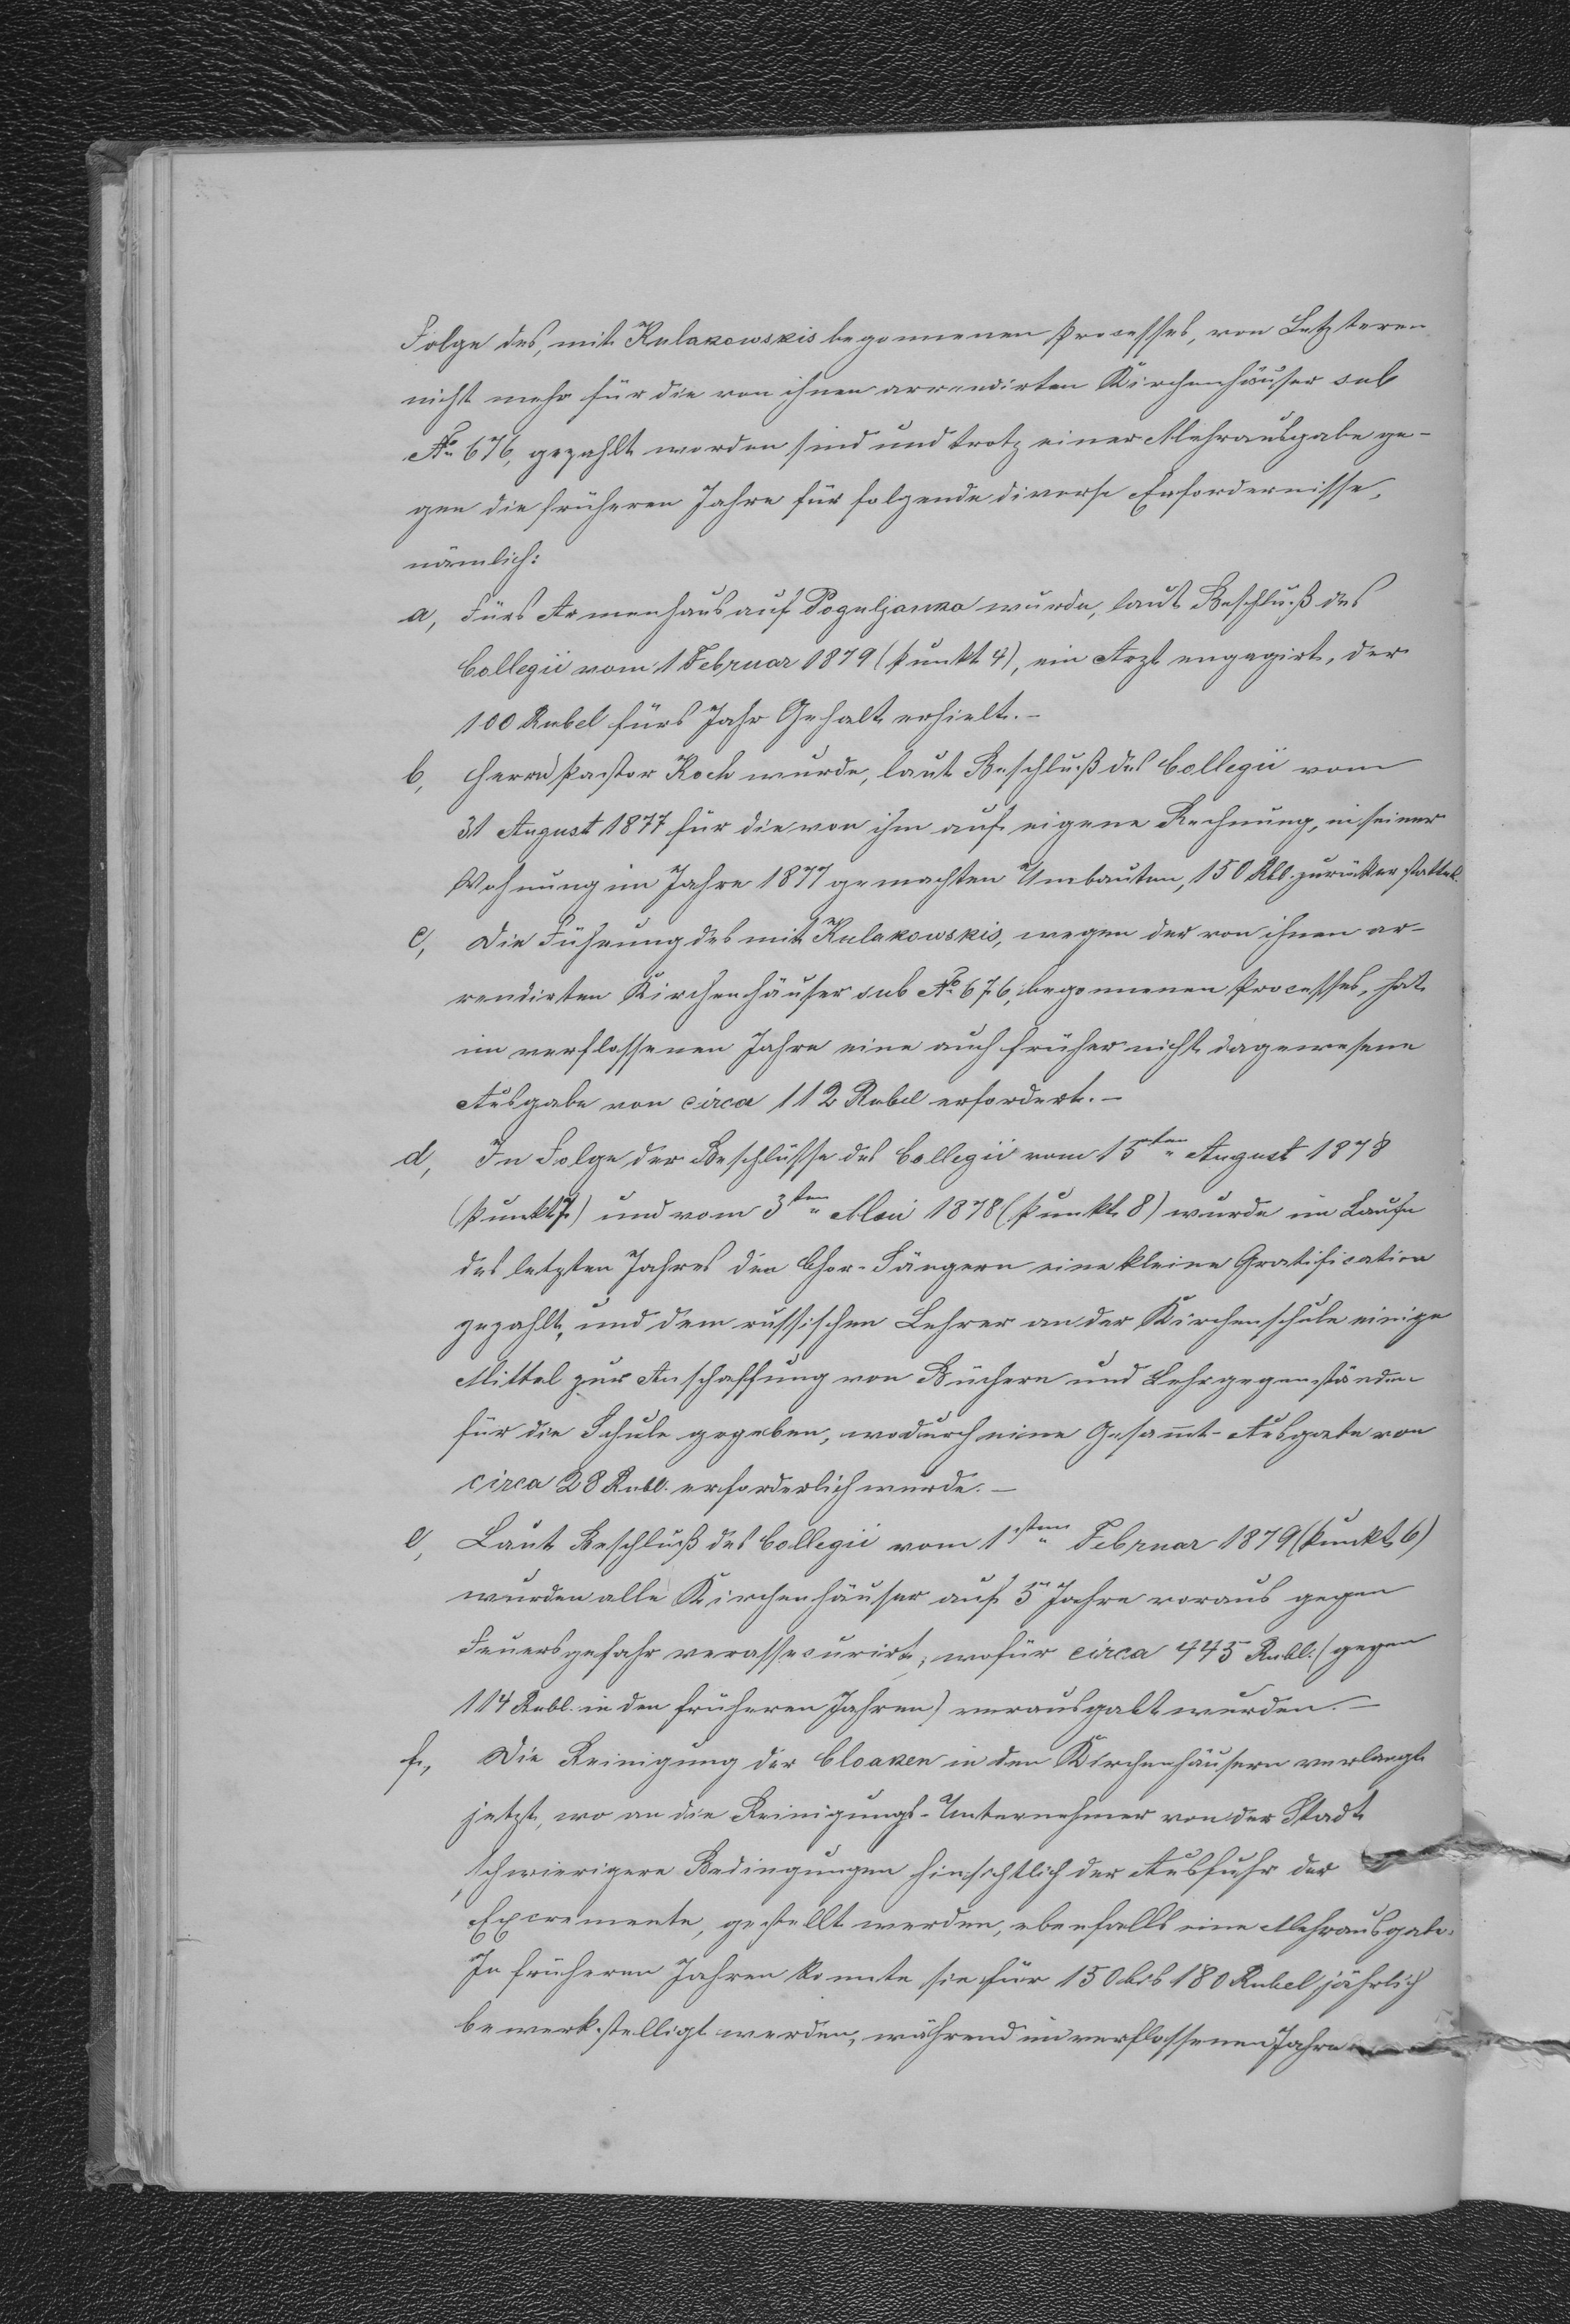 Folge des, mit Kulakowskis begonnenen Processes, von Letzteren
nicht mehr für die von ihnen arrendirten Kirchenhäuser sub
No 676, gezahlt worden sind und trotz einer Mehrausgabe ge-
gen die früheren Jahre für folgende diverse Erfordernisse,
nämlich:
a, Fürs Armenhaus auf Poguljanka wurde, laut Beschluß des
Collegii vom 1 Februar 1879 (Punkt 4), ein Arzt engagirt, der
100 Rubel fürs Jahr Gehalt erhielt. –
b, Herrn Pastor Koch wurde, laut Beschluß des Collegii vom
31 August 1877 für die von ihm auf eigene Rechnung, in seiner
Wohnung im Jahre 1877 gemachten Umbauten, 150 Rbl. zurückerstattet.
c, Die Führung des mit Kulakowskis, wegen der von ihnen ar-
rendirten Kirchenhäuser sub No 676, begonnenen Processes, hat
im verflossenen Jahre eine auch früher nicht dagewesene
Ausgabe von circa 112 Rubel erfordert. –
d, In Folge der Beschlüsse des Collegii vom 15ten August 1878
(Punkt 7) und vom 3ten Mai 1878 (Punkt 8) wurde im Laufe
des letzten Jahres den Chor-Sängern eine kleine Gratification
gezahlt, und dem russischen Lehrer an der Kirchenschule einige
Mittel zur Anschaffung von Büchern und Lehrgegenständen
für die Schule gegeben, wodurch eine Gesammt-Ausgabe von
circa 28 Rubl. erforderlich wurde. –
e, Laut Beschluß des Collegii vom 1sten Februar 1879 (Punkt 6)
wurden alle Kirchenhäuser auf 5 Jahre voraus gegen
Feuersgefahr verassecurirt, wofür circa 445 Rubl. (gegen
114 Rubl. in den früheren Jahren) verausgabt wurden. –
f., Die Reinigung der Cloaken in den Kirchenhäusern verlangt
jetzt, wo an die Reinigungs-Unternehmer von der Stadt
schwierigere Bedingungen hinsichtlich der Ausfuhr der
Excremente, gestellt werden, ebenfalls eine Mehrausgabe.
In früheren Jahren konnte sie für 150 bis 180 Rubel jährlich
bewerkstelligt werden, während im verflossenen Jahre